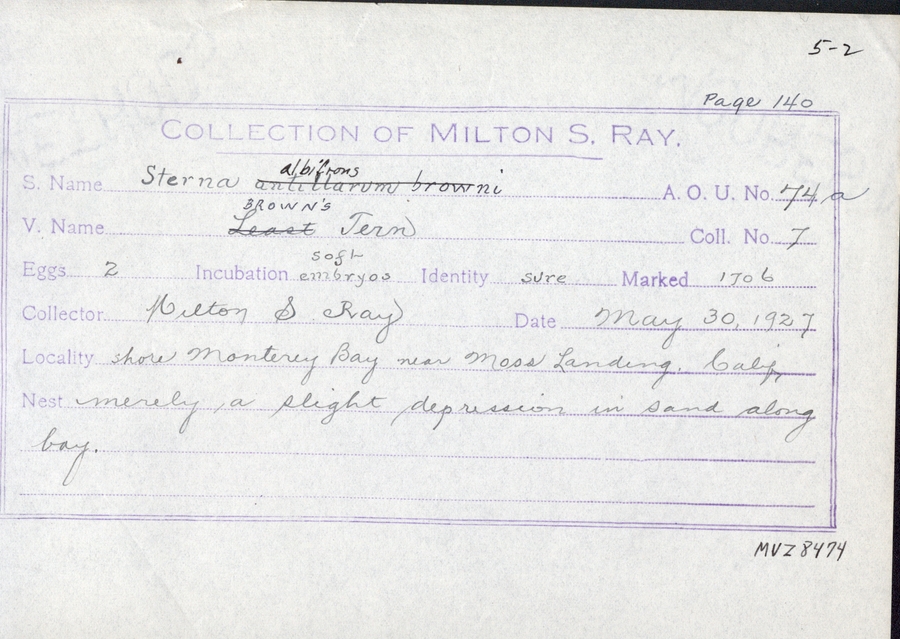 5-2
Page 140
COLLECTION OF MILTON S. RAY.
albifrons
S. Name Sterna antillarum browni A. O. U. No. 74 a
BROWN'S
V. Name Least Tern Coll. No. 7
soft
Eggs 2 Incubation embryos Identity sure Marked 1706
Collector Milton S Ray Date May 30, 1927
Locality shore Monterey Bay near Moss Landing. Calif,
Nest merely a slight depression in sand along
bay.
MVZ8474